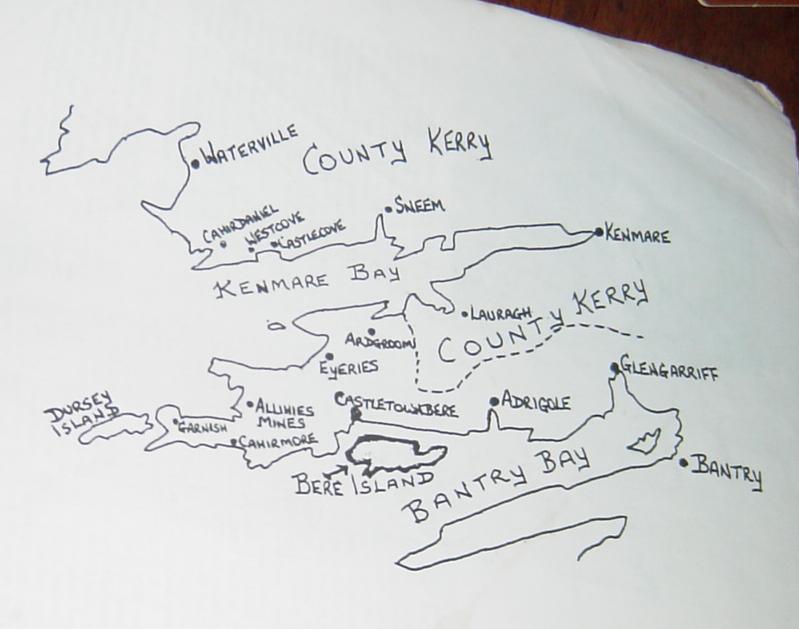 WATERVILLE
COUNTY KERRY
CAHIRDANIEL
WESTCOVE
CASTLECOVE
SNEEM
KENMARE
KENMARE BAY
LAURAGH
COUNTY KERRY
ARDGROOM
EYERIES
GLENGARRIFF
DURSEY
ISLAND
ALLIHIES
MINES
GARNISH
CAHIRMORE
CASTLETOWNBERE
ADRIGOLE
BERE ISLAND
BANTRY BAY
BANTRY